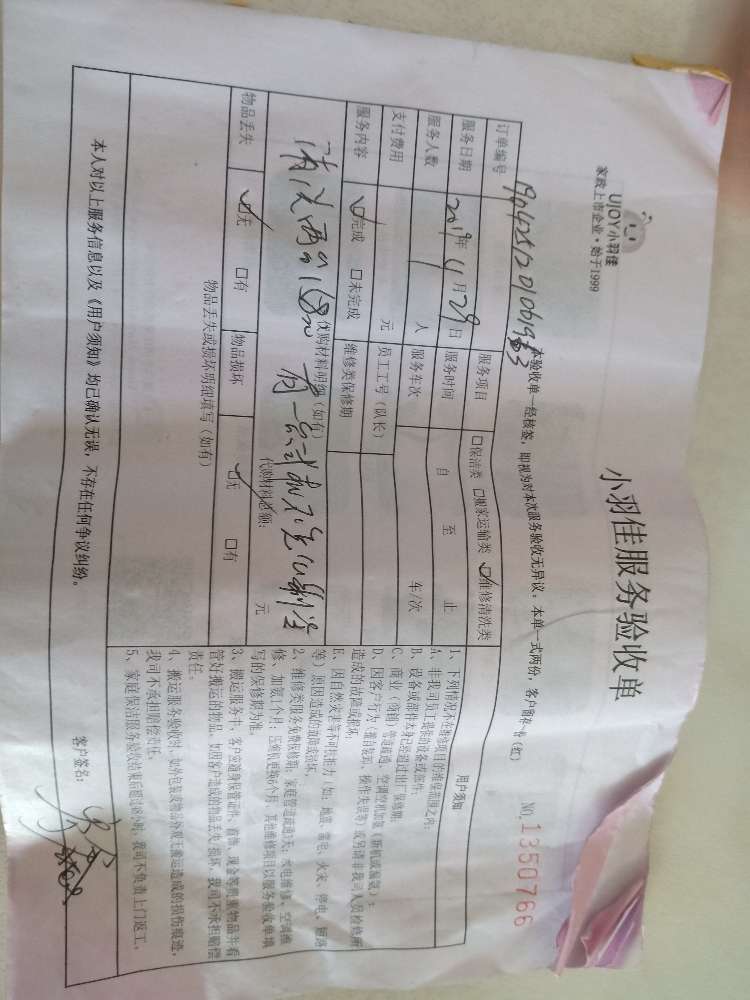 UJOY小羽佳
家政上市企业·始于1999
小羽佳服务验收单
NO. 1350766
本验收单一经核签，即视为对本次服务验收无异议；本单一式两份，客户留存一份（红）
订单编号
服务项目 □保洁类 □搬家运输类 ☑维修清洗类
服务日期 2019年11月29日 服务时间 自 至 止
服务人数 1 人 服务车次 车/次
支付费用 元 员工工号（队长）
服务内容 ☑完成 □未完成 维修类保修期
代购材料明细（如有）
代购材料总额： 元
物品丢失 ☑无 □有 物品损坏 ☑无 □有
物品丢失或损坏明细填写（如有）
用户须知
1、下列情况不在维修项目的维保范围之内：
A、非我司员工操作的设备或部件；
B、设备或部件本身已经超过原厂保修期；
D、因客户行为（擅自装拆、操作失误等）或另请非我司人员检修所
造成的故障或损坏
E、因自然灾害等不可抗拒力（如：地震、雷电、火灾、停电、短路
等）原因造成的故障或损坏。
2、维修类服务免费保修期：家庭管道疏通7天；水电维修、空调维
修、加氨1个月；压缩机更换6个月，其他维修项目以服务验收单填
写的保修期为准。
3、搬运服务中，客户应随身保管证件、首饰、现金等贵重物品并看
管好搬运的物品。如因客户造成的物品丢失、损坏，我司不承担赔偿
责任。
4、搬运服务验收时，如外包装或物品外观无搬运造成的损伤痕迹，
我司不承担赔偿责任。
5、家庭保洁服务验收结束后超过48小时，我司不负责上门返工。
本人对以上服务信息以及《用户须知》均已确认无误，不存在任何争议纠纷。
客户签名：